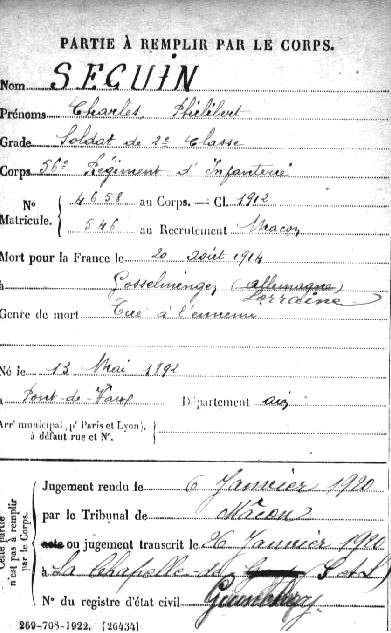 PARTIE À REMPLIR PAR LE CORPS.
Nom SEGUIN
Prénoms Charles, Philibert
Grade Soldat de 2e Classe
Corps 56e Régiment d'Infanterie
N° 4658 au Corps. — Cl. 1912
Matricule. 546 au Recrutement Macon
Mort pour la France le 20 août 1914
à Gosselminger (Allemagne)
Lorraine
Genre de mort Tué à l'ennemi
Né le 13 Mai 1892
à Pont-de-Vaux Département ain
Arr' municipal (p' Paris et Lyon),
à défaut rue et N°.
Cette partie
n'est pas à remplir
par le Corps.
Jugement rendu le 6 Janvier 1920
par le Tribunal de Mâcon
acte ou jugement transcrit le 26 Janvier 1920
à La Chapelle-de (S et L)
Guinchay
N° du registre d'état civil
269-708-1922. [26434]